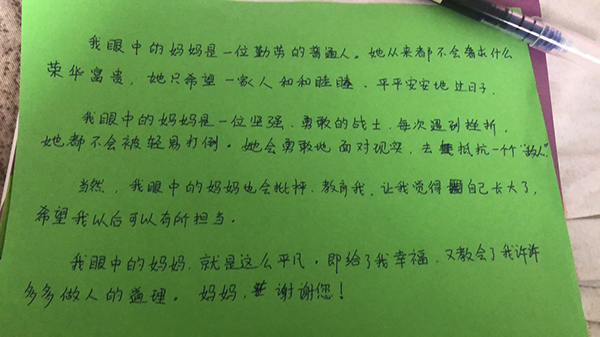 我眼中的妈妈是一位勤劳的普通人。她从来都不会奢求什么
荣华富贵，她只希望一家人和和睦睦、平平安安地过日子.
我眼中的妈妈是一位坚强、勇敢的战士，每次遇到挫折，
她都不会被轻易打倒。她会勇敢地面对现实，去抵抗一个"敌人"
当然，我眼中的妈妈也会批评、教育我，让我觉得自己长大了，
希望我以后可以有所担当。
我眼中的妈妈，就是这么平凡。即给了我幸福，又教会了我许许
多多做人的道理。妈妈，谢谢您！